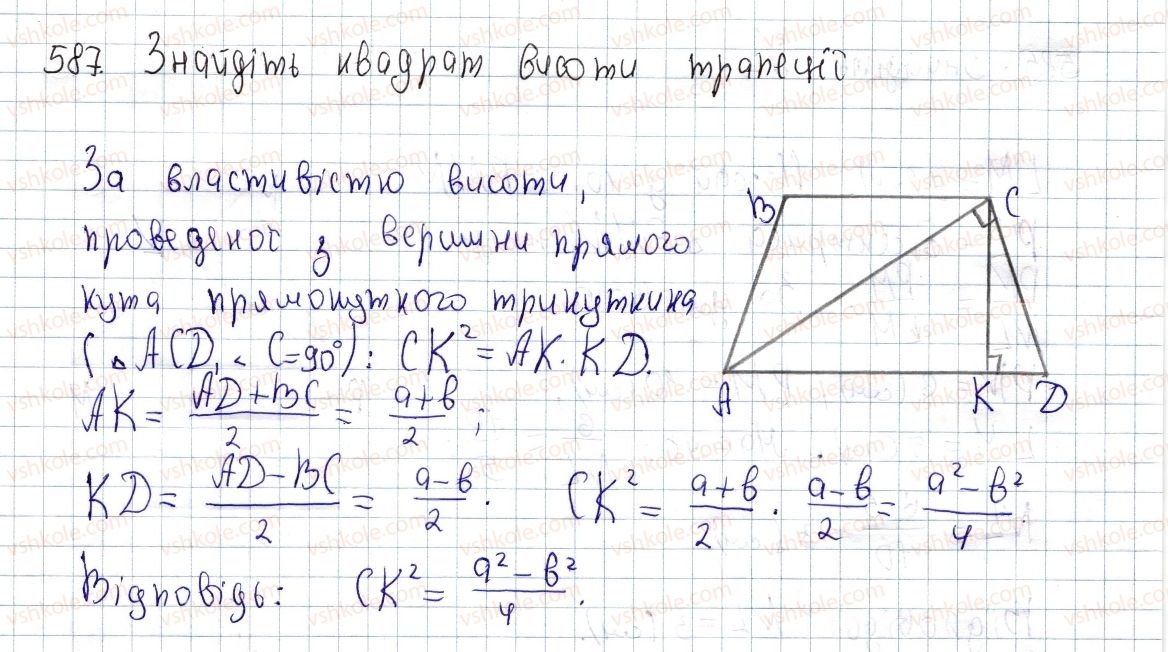 587. Знайдіть квадрат висоти трапеції
За властивістю висоти,
проведеної з вершини прямого
кута прямокутного трикутника
(△ACD, < C=90°): CK² = AK · KD.
AK = (AD+BC)/2 = (a+b)/2 ;
KD = (AD-BC)/2 = (a-b)/2 . CK² = (a+b)/2 · (a-b)/2 = (a²-b²)/4 .
Відповідь: CK² = (a²-b²)/4 .
B C
A K D
vshkole.com